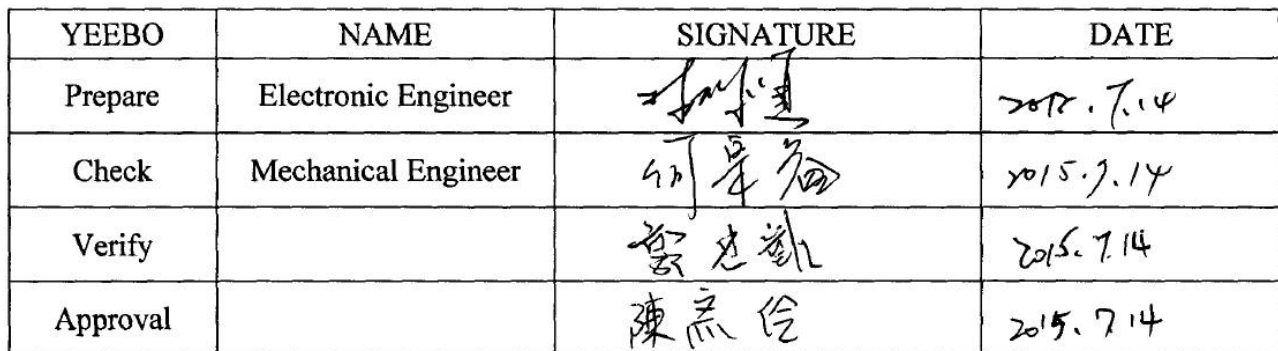 YEEBO NAME SIGNATURE DATE
Prepare Electronic Engineer 2015.7.14
Check Mechanical Engineer 2015.7.14
Verify 2015.7.14
Approval 陳 2015.7.14